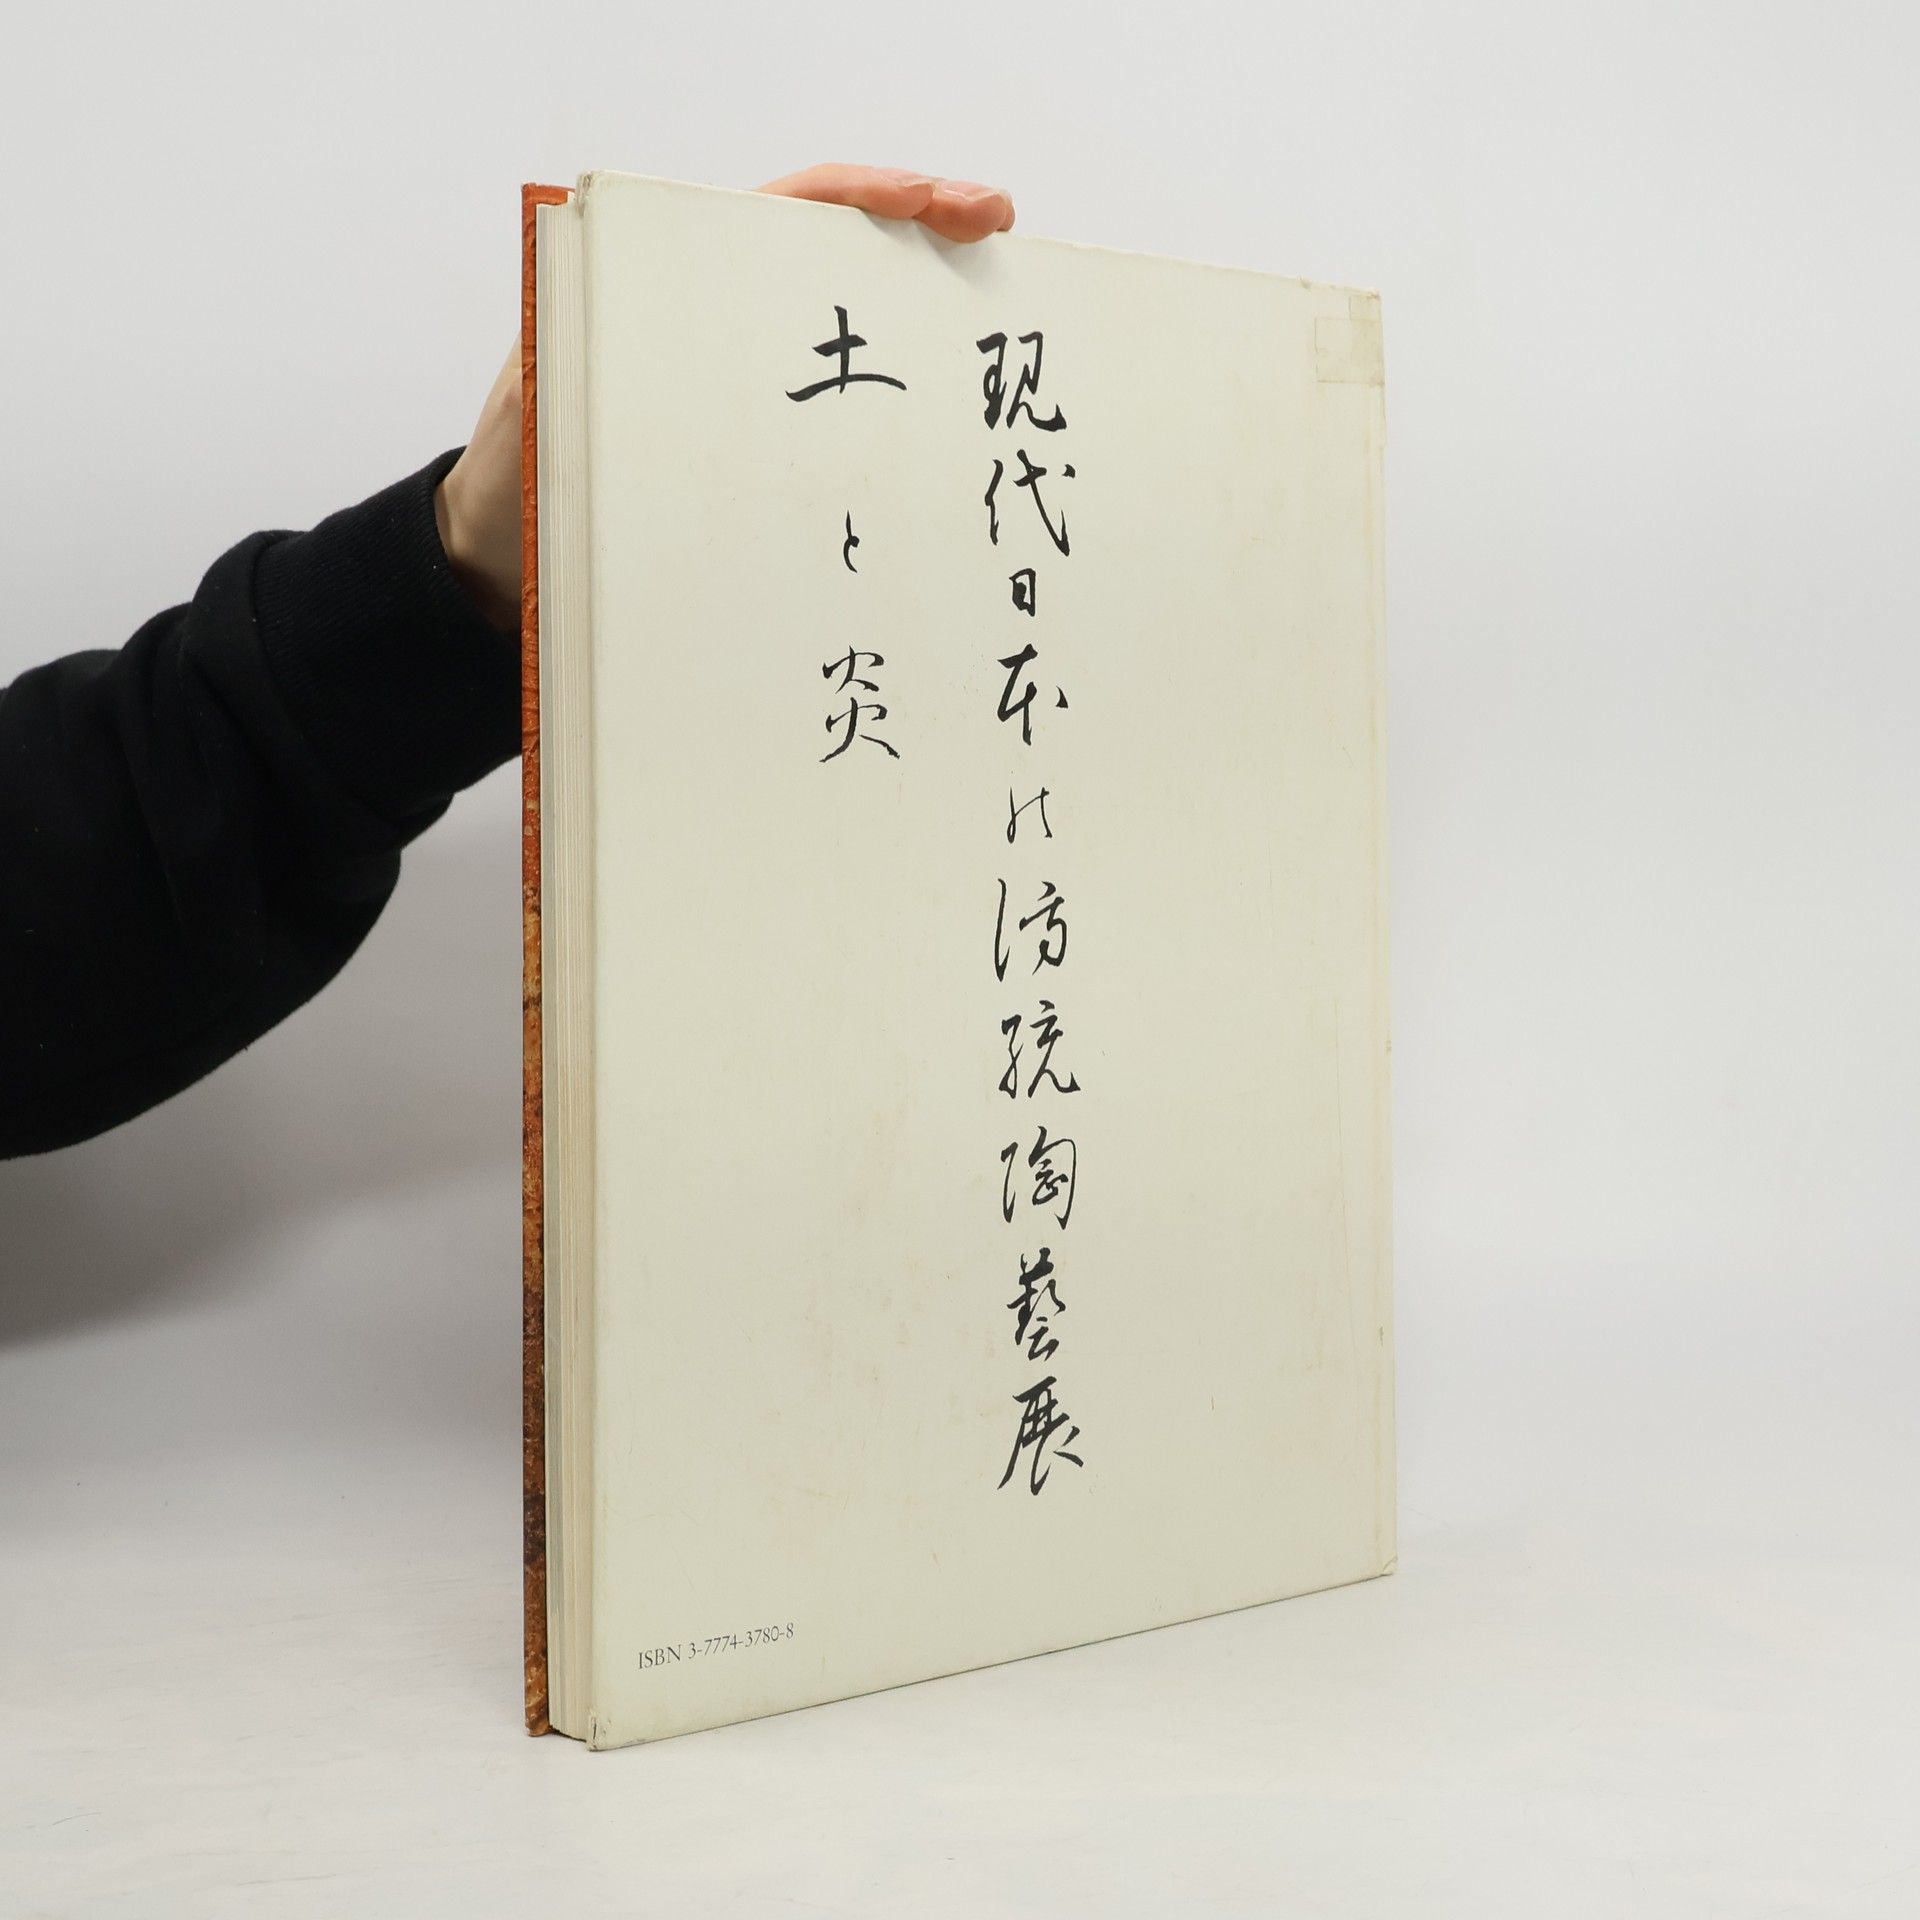 現代日本の伝統陶藝展
土と炎
ISBN 3-7774-3780-8